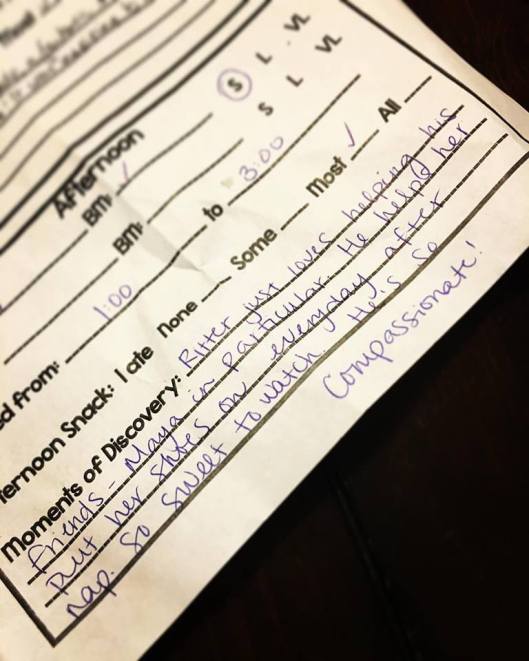 Afternoon
BM: ✓ S L VL
BM: S L VL
ed from: 1:00 to 3:00
ternoon Snack: I ate None Some Most ✓ All
Moments of Discovery: Ritter just loves helping his
friends - Maya in particular. He helped her
put her shoes on everyday after
nap. So sweet to watch. He is so
Compassionate!